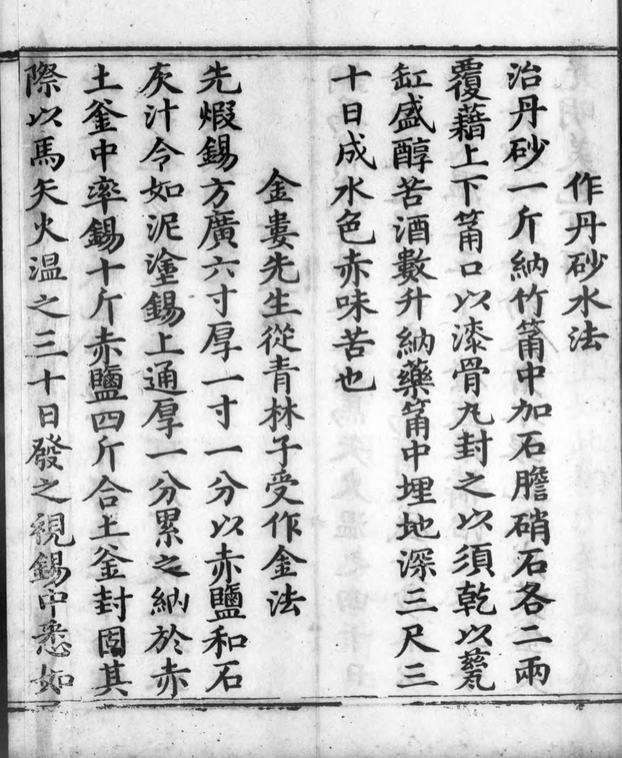 作丹砂水法
治丹砂一斤納竹筩中加石膽硝石各二兩
覆藉上下筩口以漆骨丸封之以須乾以甆
缸盛醇苦酒數升納藥筩中埋地深三尺三
十日成水色赤味苦也
金婁先生從青林子受作金法
先煆錫方廣六寸厚一寸一分以赤鹽和石
灰汁令如泥塗錫上通厚一分累之納於赤
土釜中率錫十斤赤鹽四斤合土釜封固其
際以馬矢火溫之三十日發之視錫中悉如